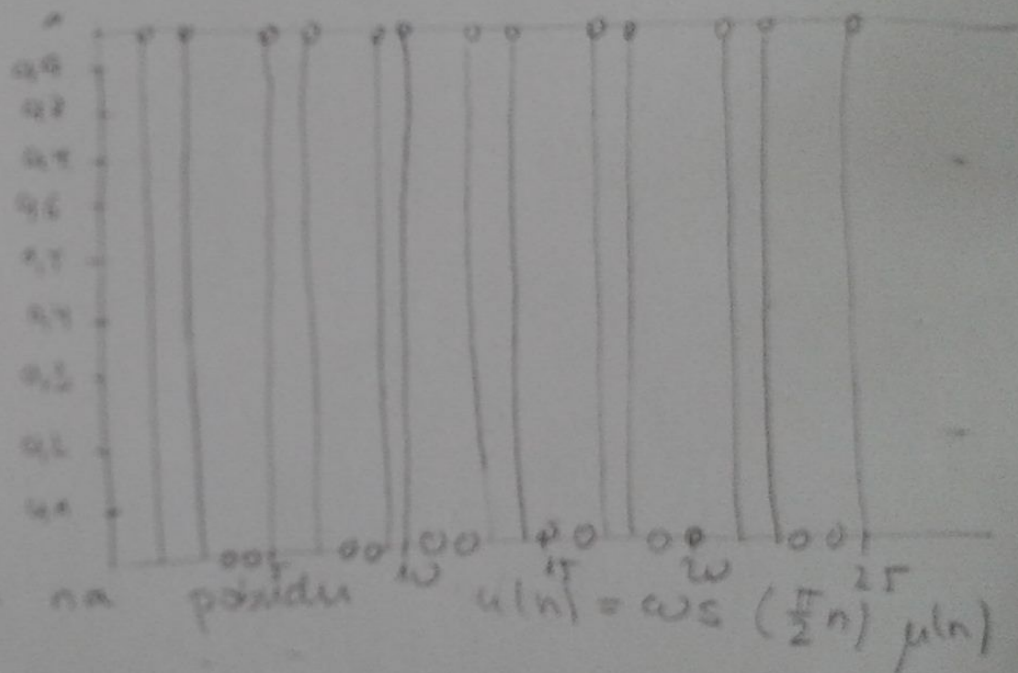 1
0,9
0,8
0,7
0,6
0,5
0,4
0,3
0,2
0,1
5 10 15 20 25
na u(n) = cos (π/2 n) μ(n)